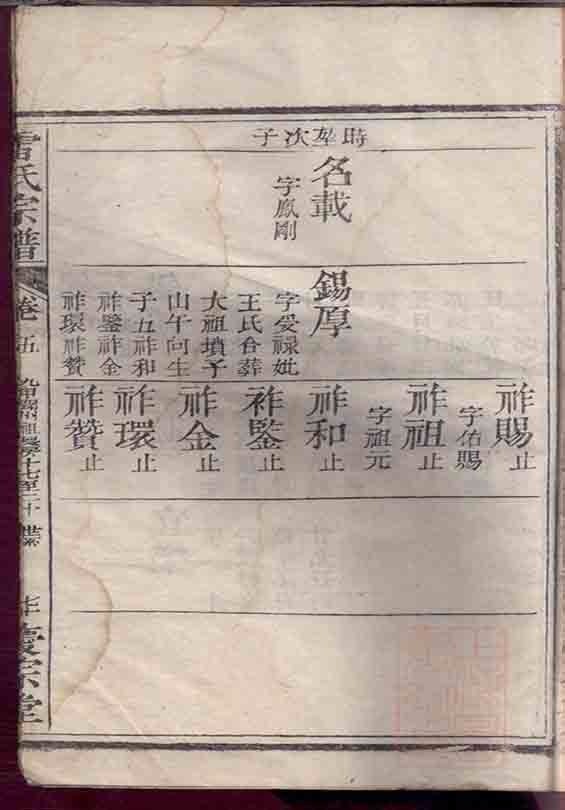 時犖次子
名載
字鳳剛
錫厚
字受祿妣
王氏合葬
大祖墳子
山午向生
子五祚和
祚鑒祚金
祚環祚贊
祚賜止
字佑賜
祚祖止
字祖元
祚和止
祚鑒止
祚金止
祚環止
祚贊止
氏宗譜
卷五
宗堂